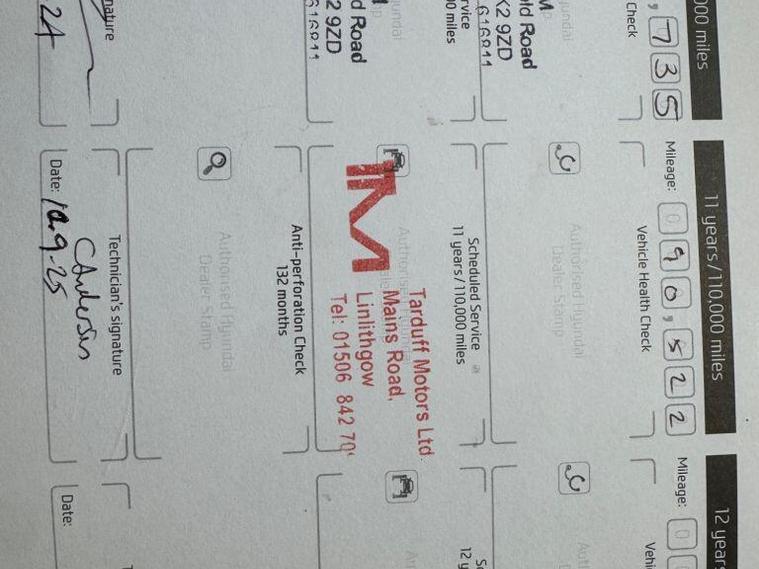 000 miles
, 7 3 5
Check
M
old Road
K2 9ZD
616911
rvice
00 miles
d Road
2 9ZD
616911
nature
24
11 years/110,000 miles
Mileage: 0 9 0 , 5 2 2
Vehicle Health Check
Authorised Hyundai
Dealer Stamp
Scheduled Service
11 years/110,000 miles
Tarduff Motors Ltd.
Mains Road,
Linlithgow
Tel: 01506 842 70
Anti-perforation Check
132 months
Authorised Hyundai
Dealer Stamp
Technician's signature
C Anderson
Date: 10.9-25
12 years
Mileage: 0
Vehi
Auth
D
Sc
12 y
Au
T
Date: